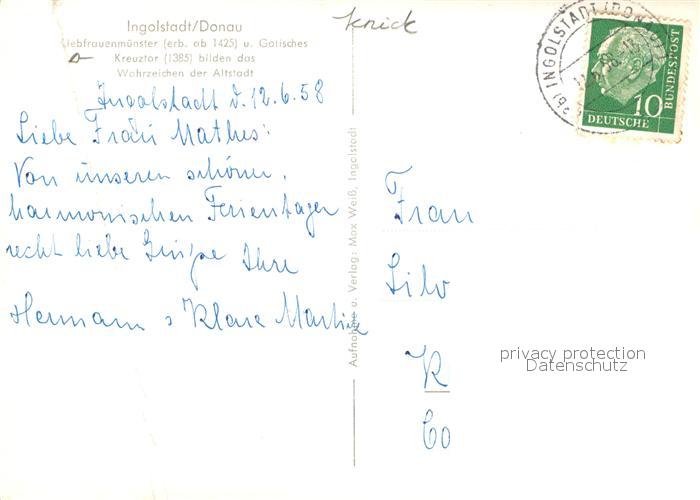 Ingolstadt/Donau
Liebfrauenmünster (erb. ab 1425) u. Gotisches
Kreuztor (1385) bilden das
Wahrzeichen der Altstadt
Knick
Ingolstadt d. 12.6.58
Liebe Frau Mathes!
Von unseren schönen,
harmonischen Ferientagen
recht liebe Grüße Ihre
Hermann &
Aufnahme u. Verlag: Max Weiß, Ingolstadt
INGOLSTADT (DONAU)
10
DEUTSCHE
BUNDESPOST
Frau
K
Co
privacy protection
Datenschutz